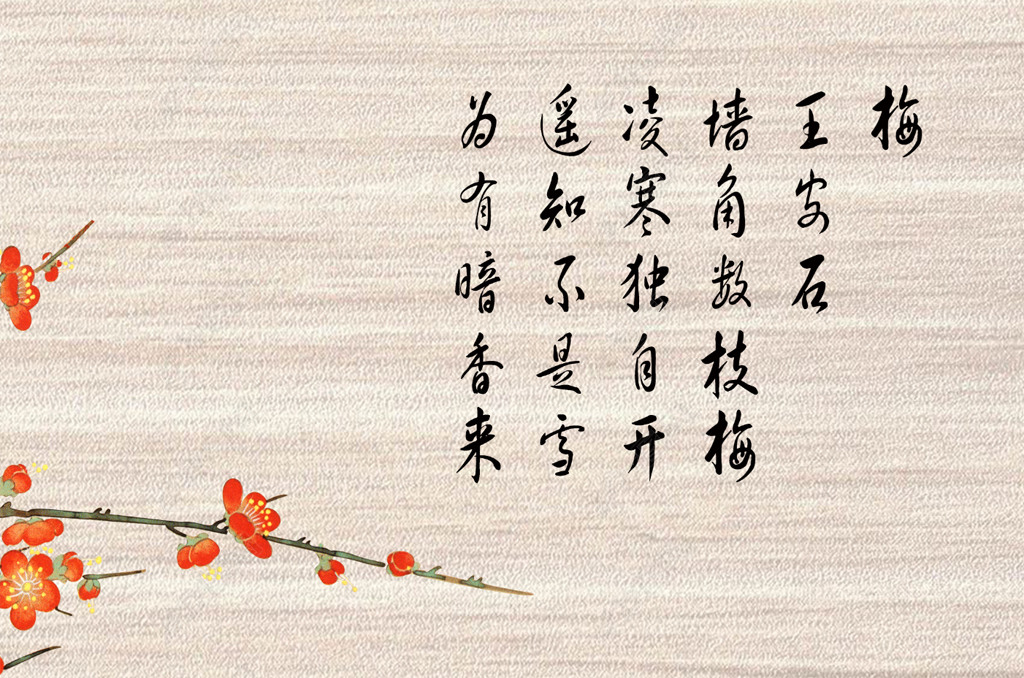 梅
王安石
墙角数枝梅
凌寒独自开
遥知不是雪
为有暗香来